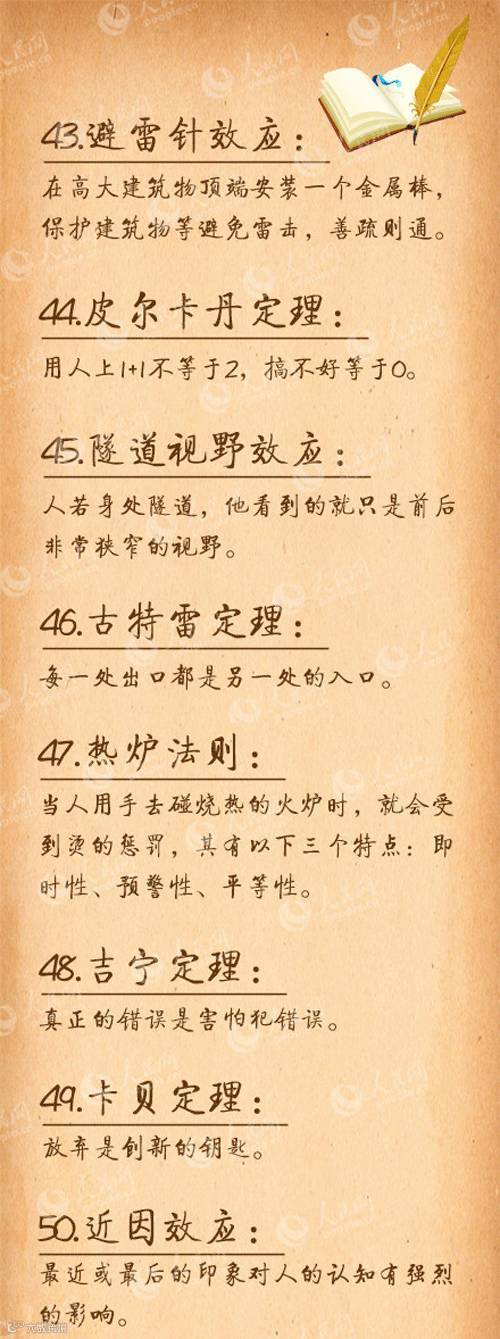 人民网
people.cn
43.避雷针效应：
在高大建筑物顶端安装一个金属棒，
保护建筑物等避免雷击，善疏则通。
44.皮尔卡丹定理：
用人上1+1不等于2，搞不好等于0。
45.隧道视野效应：
人若身处隧道，他看到的就只是前后
非常狭窄的视野。
46.古特雷定理：
每一处出口都是另一处的入口。
47.热炉法则：
当人用手去碰烧热的火炉时，就会受
到烫的惩罚，其有以下三个特点：即
时性、预警性、平等性。
48.吉宁定理：
真正的错误是害怕犯错误。
49.卡贝定理：
放弃是创新的钥匙。
50.近因效应：
最近或最后的印象对人的认知有强烈
的影响。